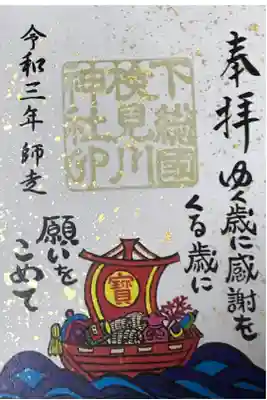 奉拝
ゆく歳に感謝を
くる歳に
願いを
こめて
令和三年師走
下総国
検見川
神社印
寶